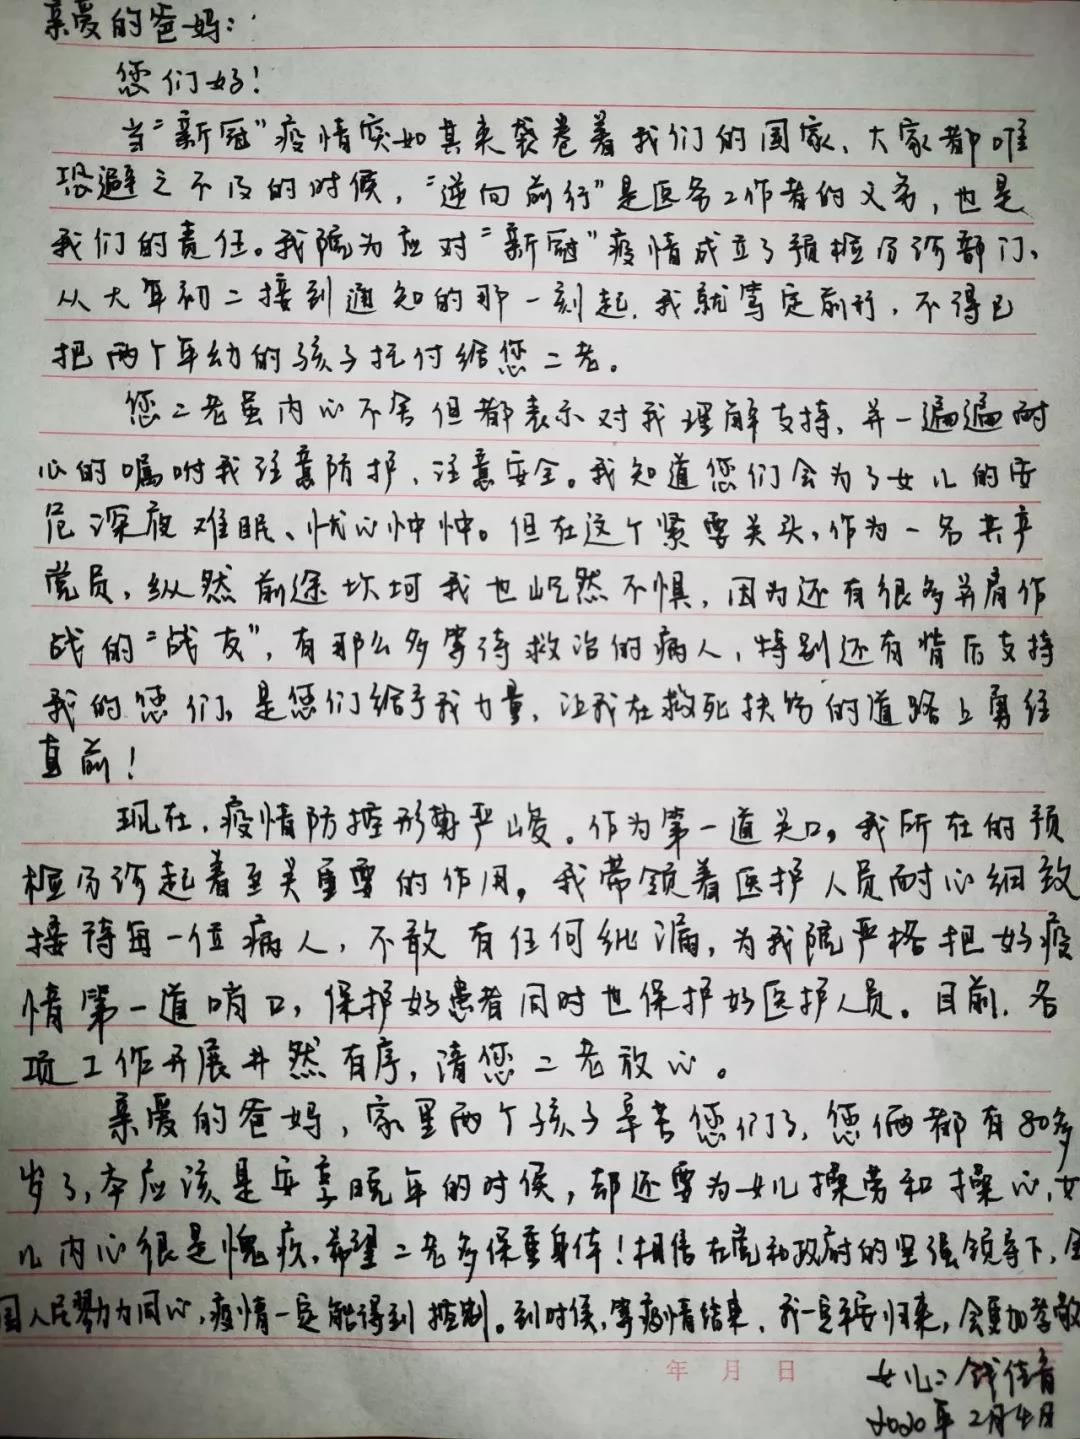 亲爱的爸妈：
您们好！
当“新冠”疫情突如其来袭卷着我们的国家、大家都唯
恐避之不及的时候，“逆向前行”是医务工作者的义务，也是
我们的责任。我院为应对“新冠”疫情成立了预检分诊部门、
从大年初二接到通知的那一刻起，我就笃定前行，不得已
把两个年幼的孩子托付给您二老。
您二老虽内心不舍但都表示对我理解支持、并一遍遍耐
心的嘱咐我注意防护、注意安全。我知道您们会为了女儿的安
危深夜难眠、忧心忡忡。但在这个紧要关头，作为一名共产
党员，纵然前途坎坷我也屹然不惧，因为还有很多并肩作
战的“战友”，有那么多等待救治的病人，特别还有背后支持
我的您们，是您们给予我力量，让我在救死扶伤的道路上勇往
直前！
现在，疫情防控形势严峻。作为第一道关口，我所在的预
检分诊起着至关重要的作用。我带领着医护人员耐心细致
接待每一位病人，不敢有任何纰漏，为我院严格把好疫
情第一道哨口，保护好患者同时也保护好医护人员。目前，各
项工作开展井然有序，请您二老放心。
亲爱的爸妈，家里两个孩子辛苦您们了，您俩都有80多
岁了，本应该是安享晚年的时候，却还要为女儿操劳和操心，女
儿内心很是愧疚，希望二老多保重身体！相信在党和政府的坚强领导下，全
国人民勠力同心，疫情一定能得到控制。到时候，等疫情结束，我一定平安归来，会更加孝敬
年 月 日
女儿：钱佳音
2020年2月4日